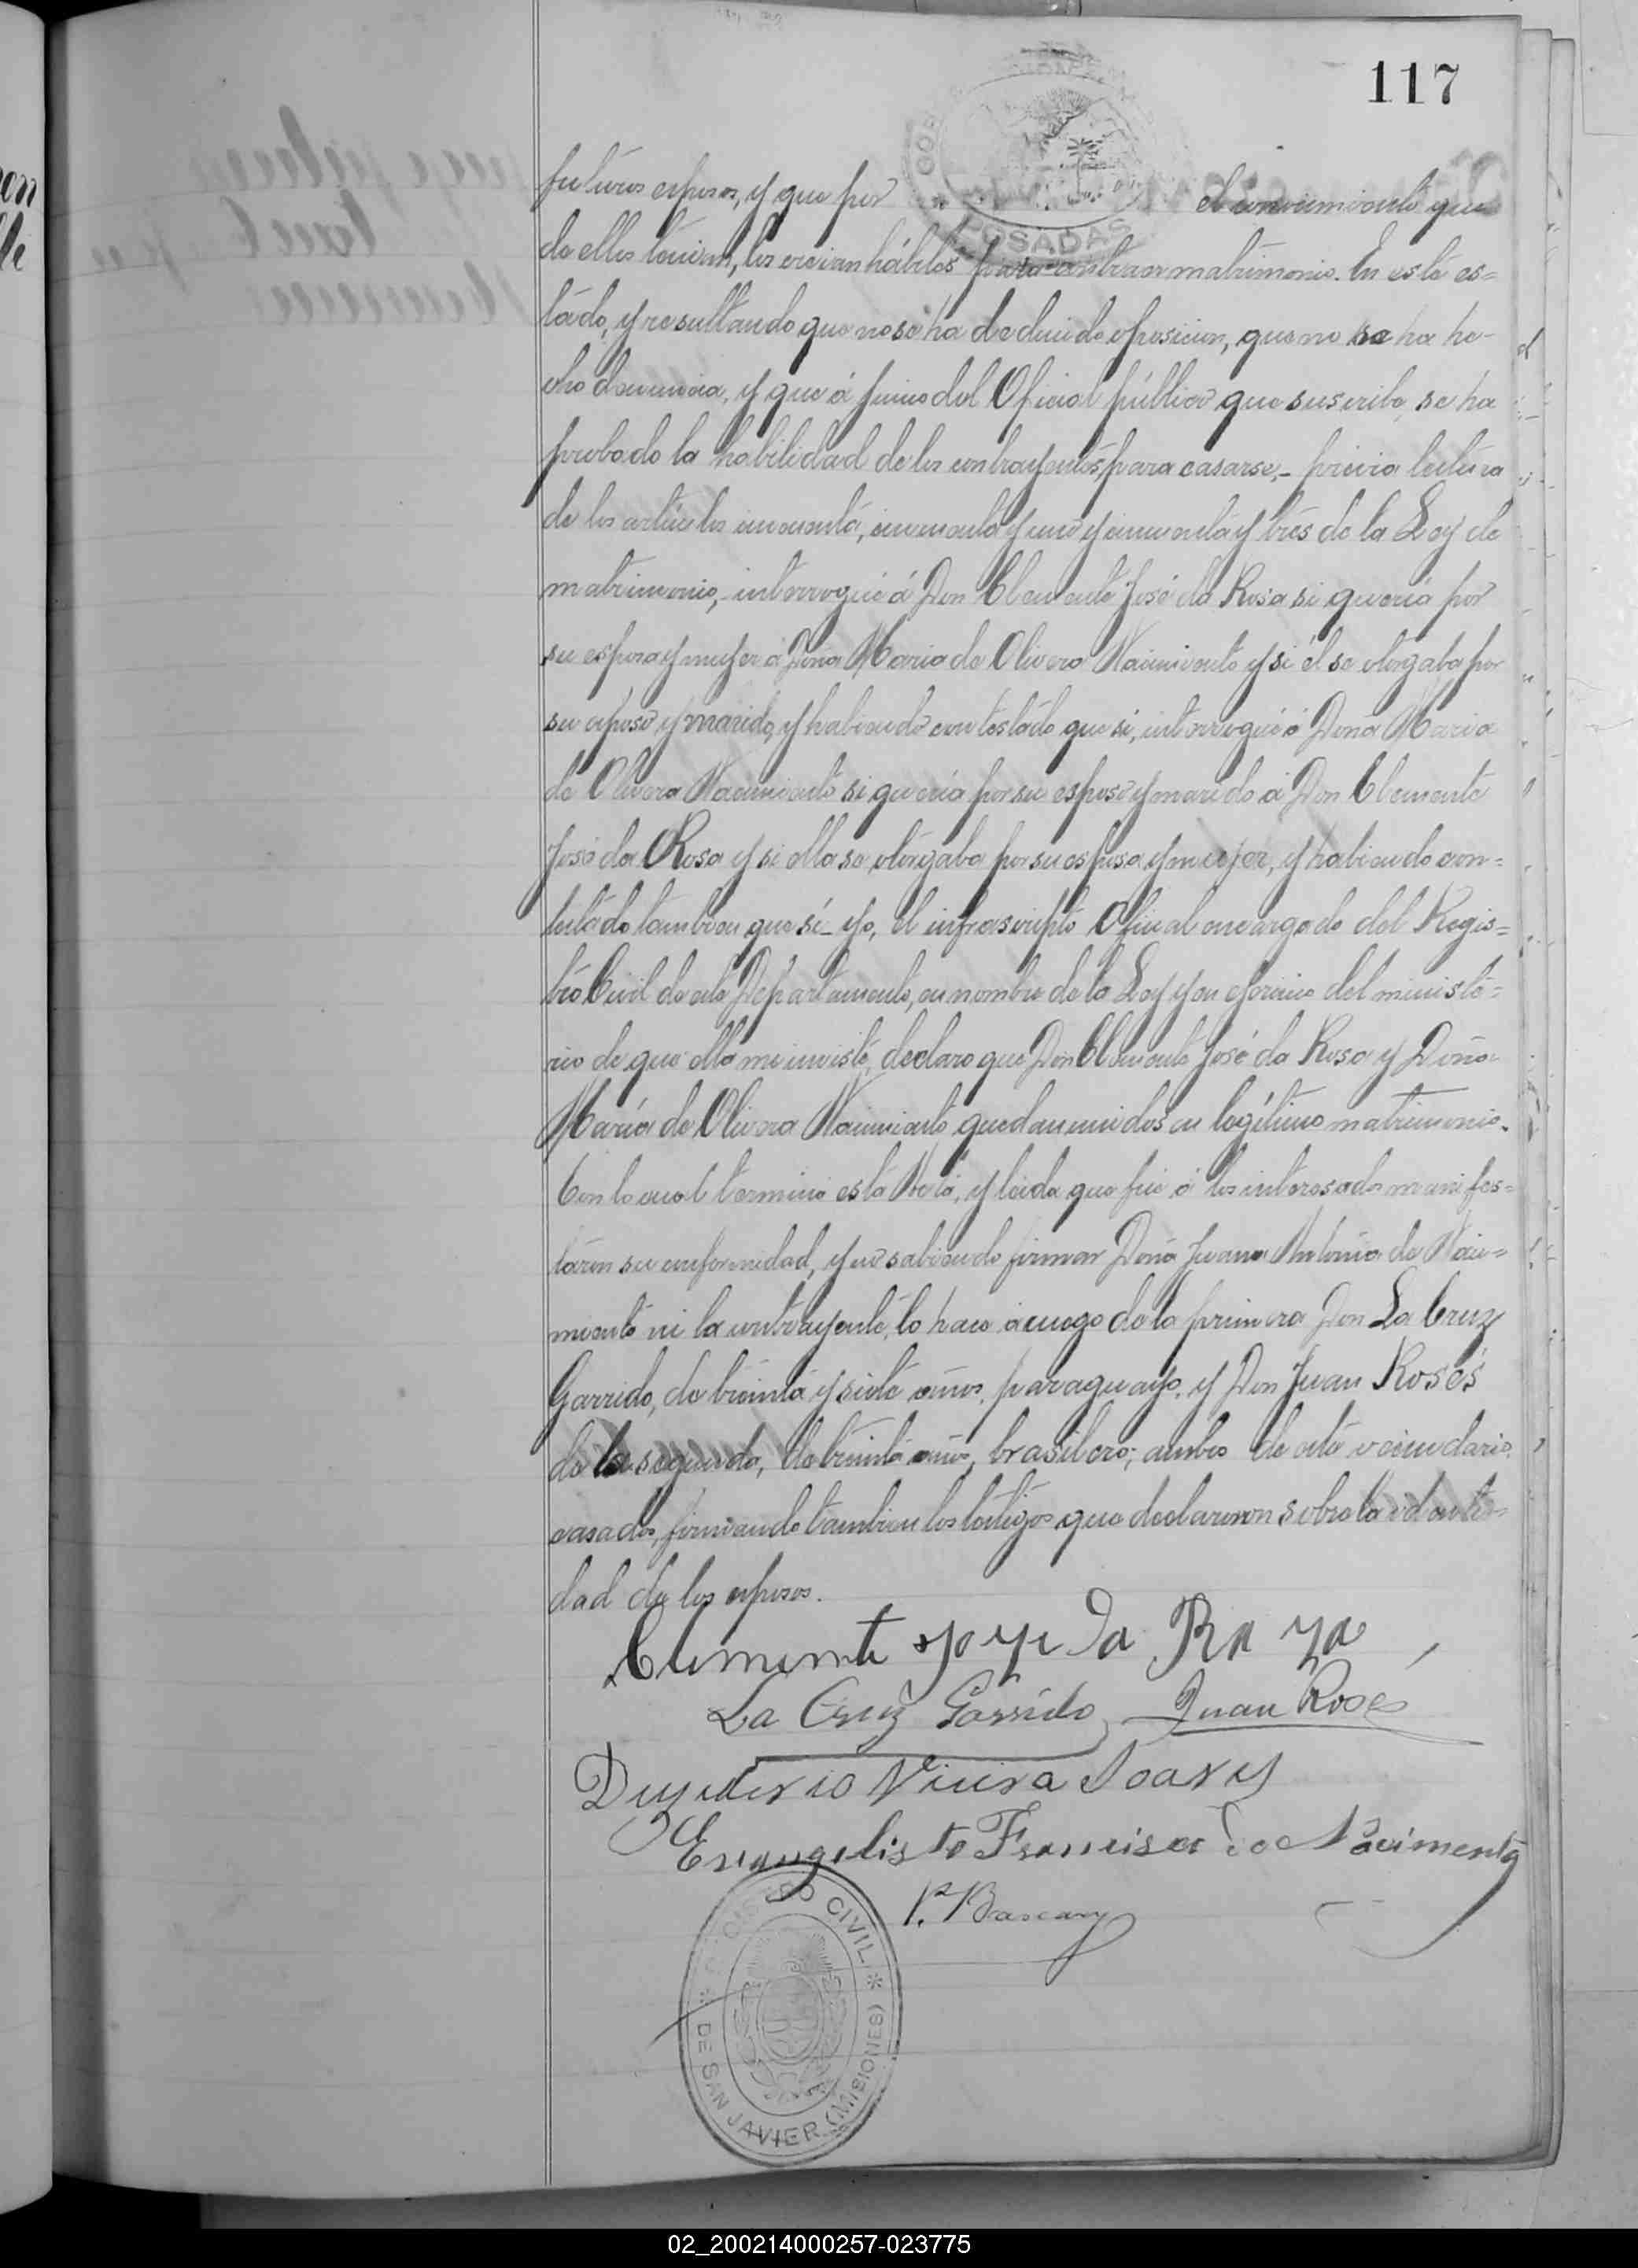 117
GOB
POSADAS
futuros esposos, y que por el conocimiento que
de ellos tenian, los creian hábiles para contraer matrimonio. En este es=
tado, y resultando que no se ha deducido oposicion, que no se ha he-
cho denuncia, y que á juicio del Oficial público que suscribe, se ha
probado la habilidad de los contrayentes para casarse,- prévia lectura
de los artículos cincuenta, cincuenta y uno y cincuenta y tres de la Ley de
matrimonio,- interrogué á Don Clemente José da Rosa si queria por
su esposa y mujer á Doña Maria de Olivera Nacimiento y si él se otorgaba por
su esposo y marido, y habiendo contestado que si, interrogué á Doña Maria
de Olivera Nacimiento si queria por su esposo y marido á Don Clemente
José da Rosa y si ella se otorgaba por su esposa y mujer, y habiendo con=
testado tambien que sí- yo, el infrascripto Oficial encargado del Regis=
tro Civil de este Departamento, en nombre de la Ley y en ejercicio del ministe=
rio de que ella me inviste, declaro que Don Clemente José da Rosa y Doña
María de Olivera Nacimiento quedan unidos en legítimo matrimonio.
Con lo cual terminó esta Acta, y leida que fué á los interesados manifes=
taron su conformidad, y no sabiendo firmar Doña Juana Antonia de Naci=
miento ni la contrayente, lo hace á ruego de la primera Don La Cruz
Garrido, de treinta y siete años, paraguayo, y Don Juan Rosés
de la segunda, de treinta años, brasilero; ambos de este vecindario,
casados, firmando tambien los testigos que declararon sobre la identi=
dad de los esposos.
Clemente Joze da Roza
La Cruz Garrido Juan Rosés
Dezederio Vieira Soares
Evangelisto Francisco do Nacimento
P. Bascary
REGISTRO CIVIL
DE SAN JAVIER (MISIONES)
02_200214000257-023775